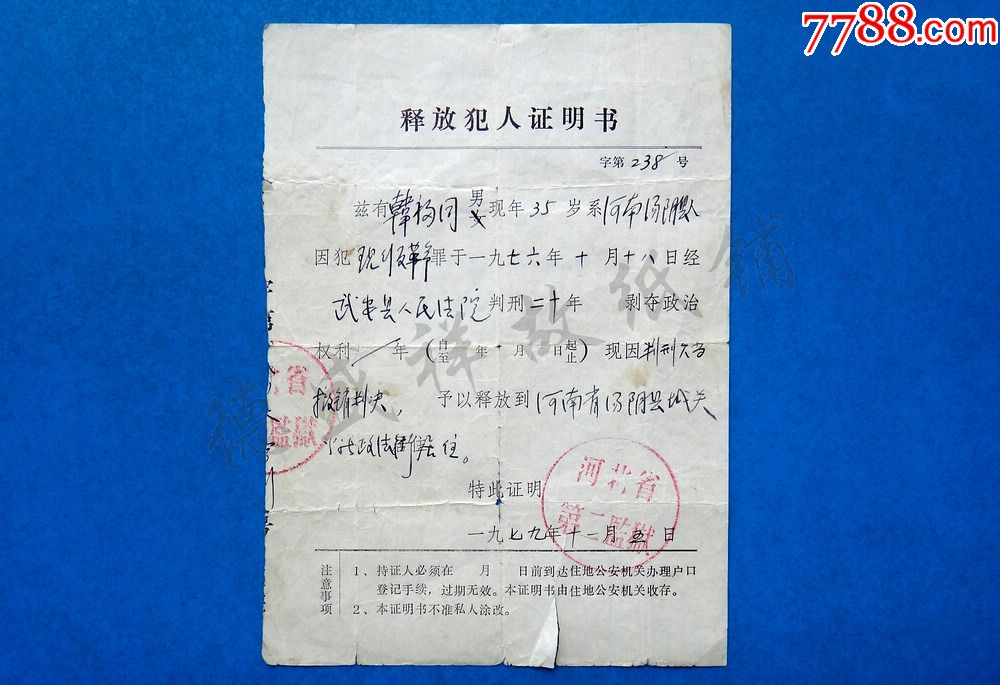 7788.com
释放犯人证明书
字第238号
兹有韩杨同 男女现年35岁系河南汤阴县人
因犯现行反革命罪于一九七六年十月十八日经
武安县人民法院判刑二十年 剥夺政治
权利 年(自至 年 月 日起止)现因判刑不当
撤销判决, 予以释放到河南省汤阴县城关
住。
特此证明
一九七九年十一月五日
河北省
第二监狱
省
监狱
注意事项
1、持证人必须在 月 日前到达住地公安机关办理户口
登记手续,过期无效。本证明书由住地公安机关收存。
2、本证明书不准私人涂改。
德盛祥故纸铺